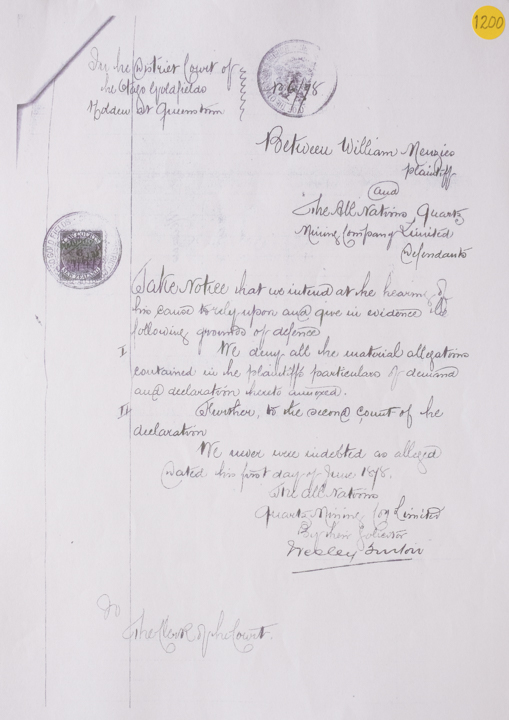 1200
In the District Court of
the Otago Goldfields
Holden at Queenstown
Between William Menzies
Plaintiff
and
The All Nations Quartz
Mining Company Limited
Defendants
Take Notice that we intend at the hearing of
this cause to rely upon and give in evidence the
following grounds of defence
I We deny all the material allegations
contained in the plaintiffs particulars of demand
and declaration hereto annexed.
II Further, to the second count of the
declaration
We never were indebted as alleged
Dated this first day of June 1878.
The All Nations
Quartz Mining Coy Limited
By their Solicitor
Wesley Turton
To
The Clerk of the Court.